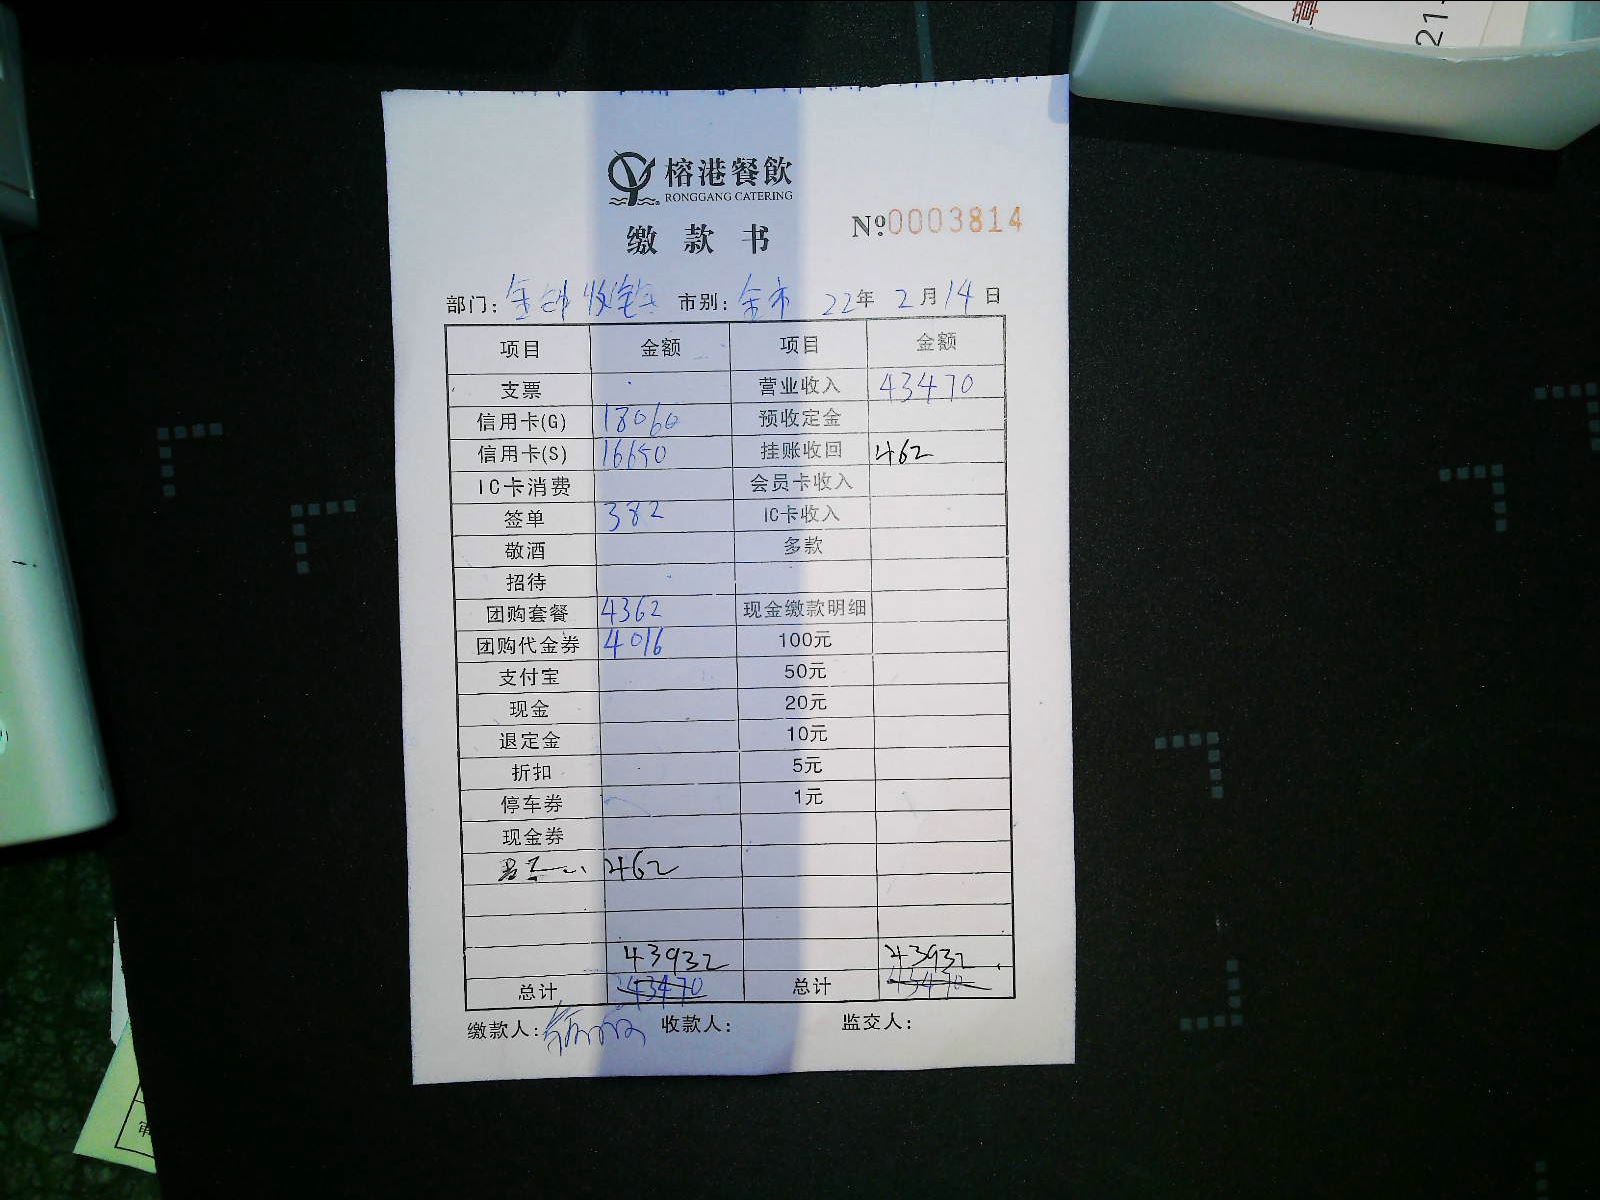 章
21
榕港餐飲
RONGGANG CATERING
缴款书
№:0003814
部门: 收 市别: 全市 22年 2月14日
项目 金额 项目 金额
支票 营业收入 43470
信用卡(G) 18060 预收定金
信用卡(S) 16650 挂账收回 462
IC卡消费 会员卡收入
签单 382 IC卡收入
敬酒 多款
招待
团购套餐 4362 现金缴款明细
团购代金券 4016 100元
支付宝 50元
现金 20元
退定金 10元
折扣 5元
停车券 1元
现金券
462
43932 43932
总计 43470 总计 43470
缴款人: 收款人: 监交人:
审